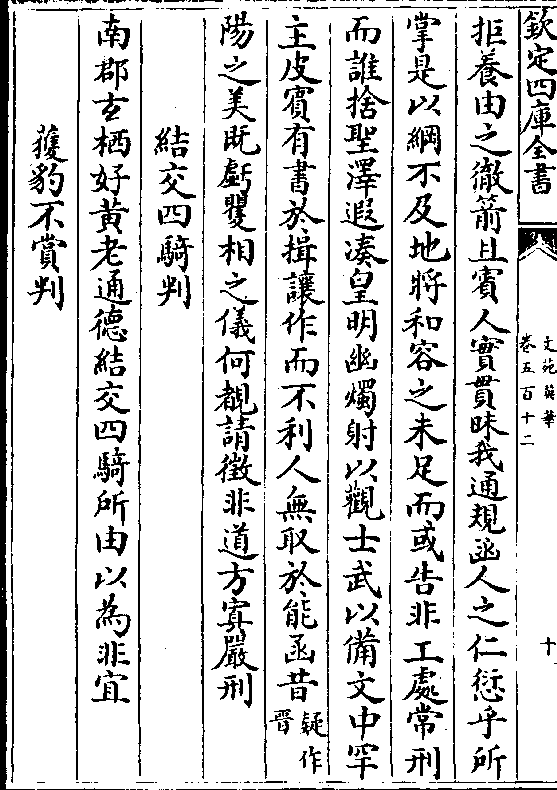 欽定四庫全書
文苑英華
卷五百十二
十
拒養由之徹箭且賓人實貫昧我通規函人之仁愆乎所
掌是以綱不及地將和容之未足而或告非工處常刑
而誰捨聖澤遐湊皇明幽燭射以觀士武以備文中罕
主皮賓有書於揖讓作而不利人無取於能函昔疑作晉
陽之美既虧矍相之儀何覩請徵非道方寘嚴刑
結交四騎判
南郡玄栖好黃老通德結交四騎所由以為非宜
獲豹不賞判